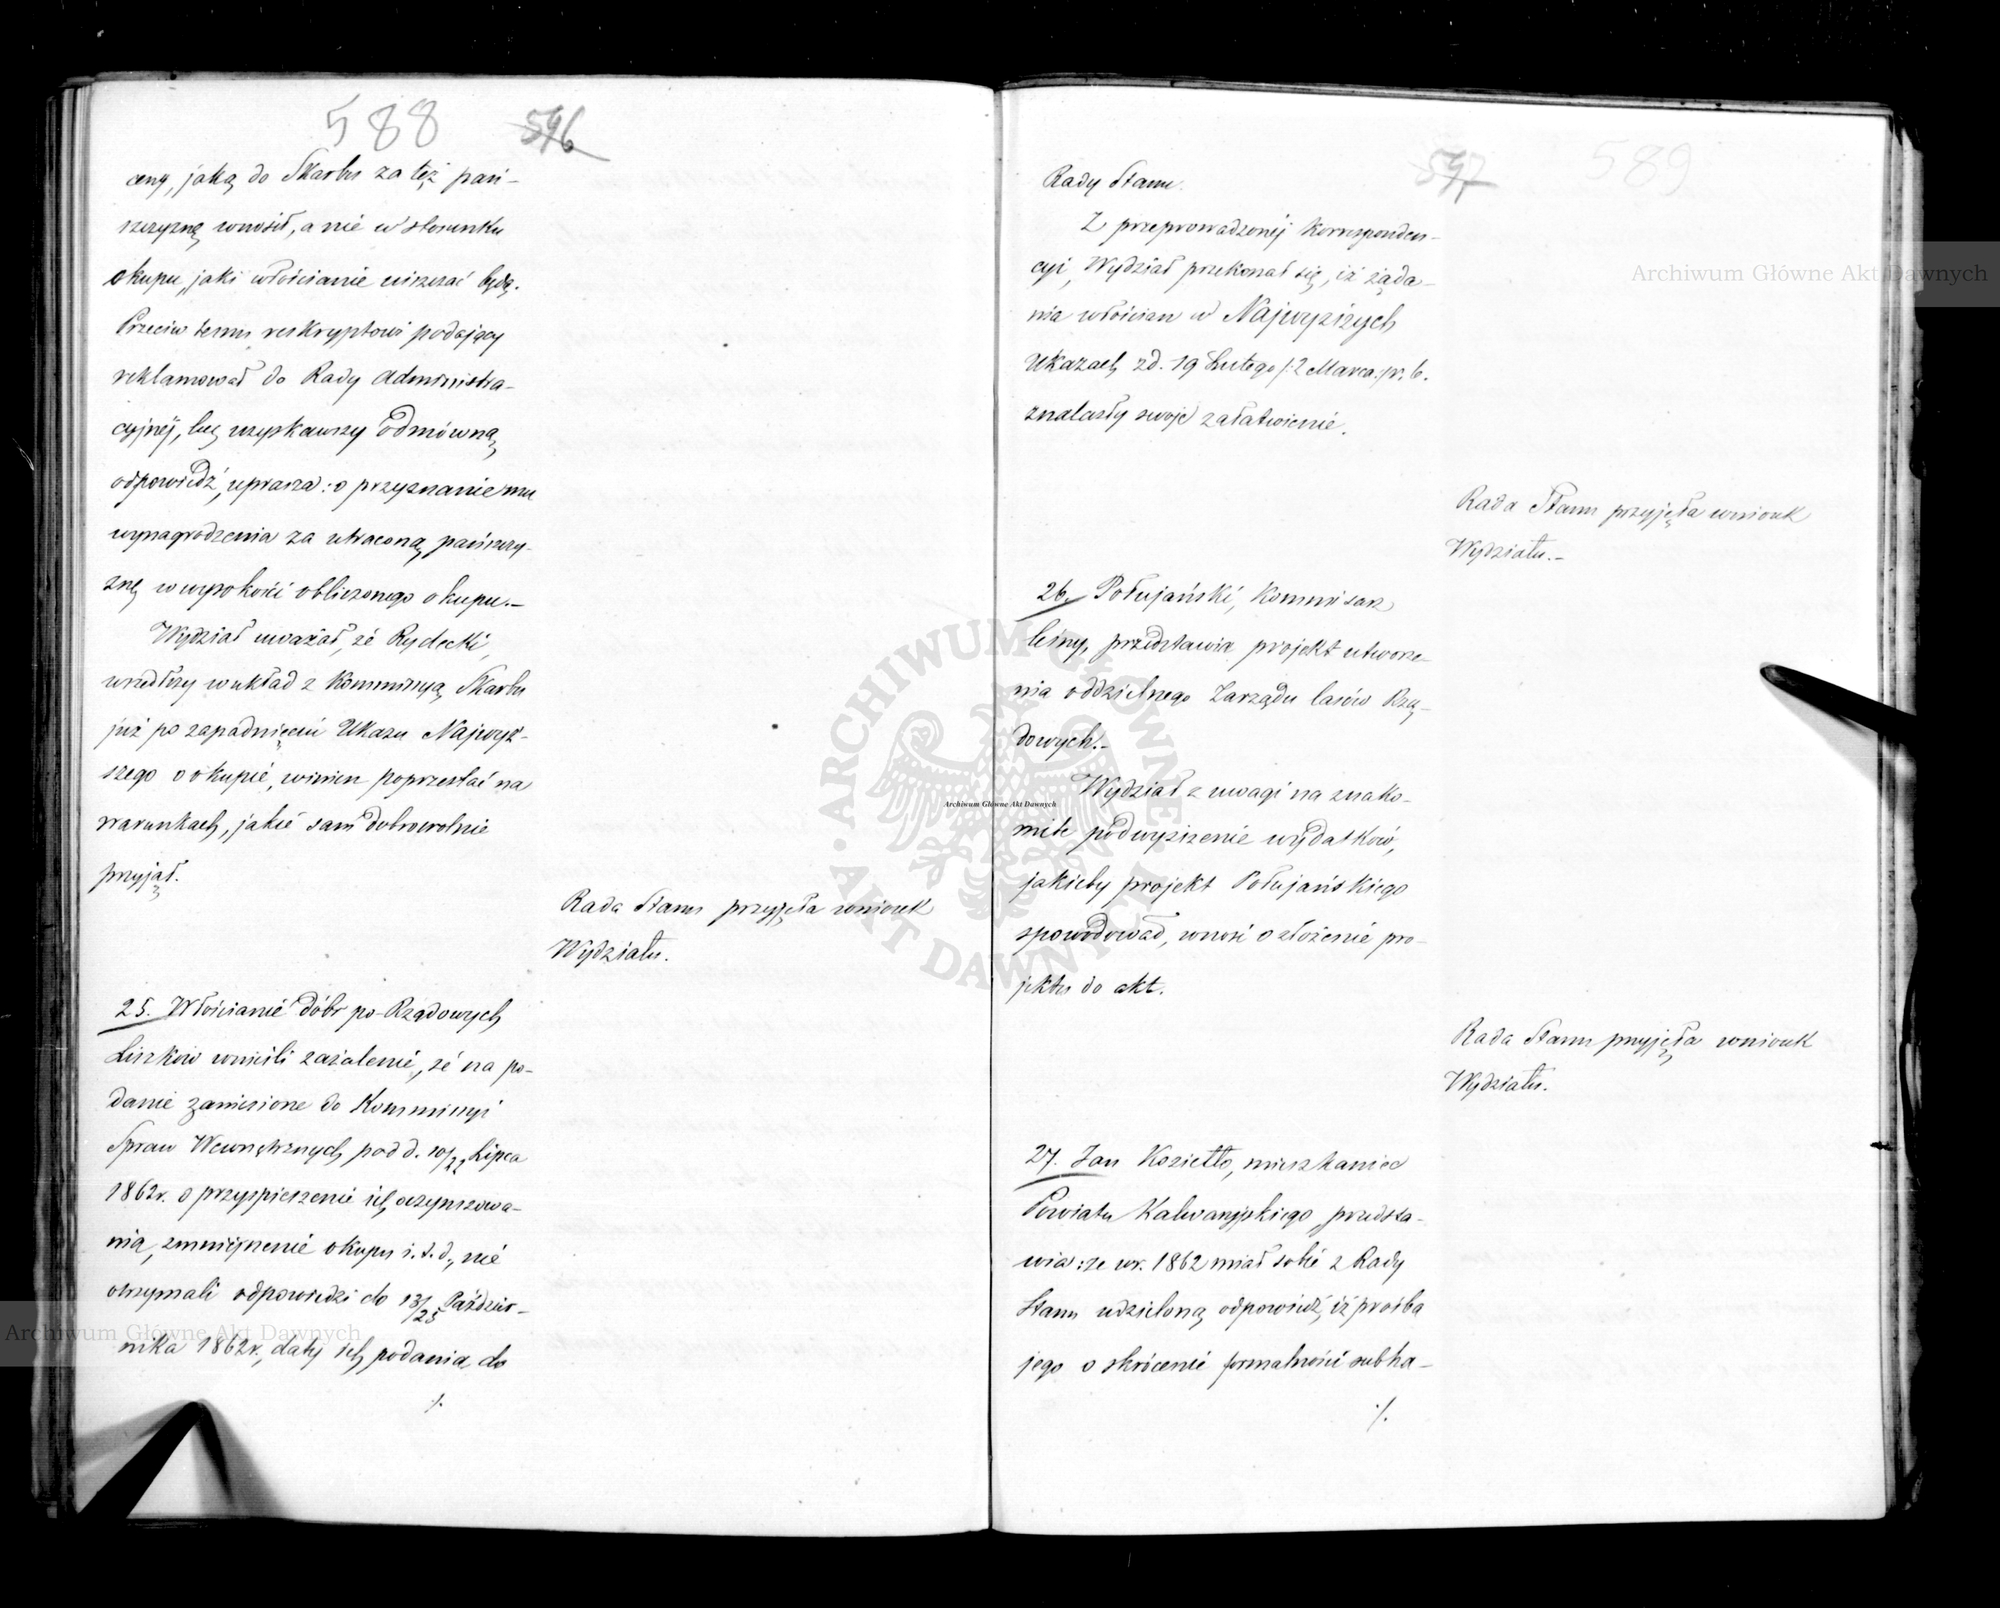 588 596
ceny, jaką do Skarbu za też pań-
szczyznę wnosił, a nie w stosunku
okupu, jaki włościanie uiszczać będą.
Przeciw temu reskryptowi podający
reklamował do Rady Administra-
cyjnéj, lecz uzyskawszy odmówną
odpowiedź, uprasza: o przyznanie mu
wynagrodzenia za utraconą pańszczy-
znę w wysokości obliczonego okupu.-
Wydział uważał, że Rydecki,
wszedłszy w układ z Kommissyą Skarbu
już po zapadnięciu Ukazu Najwyż-
szego o okupie, winien poprzestać na
warunkach, jakie sam dobrowolnie
przyjął.
Rada Stanu przyjęła wniosek
Wydziału.
25. Włościanie dóbr po-Rządowych
Liszków wnieśli zażalenie, że na po-
danie zaniesione do Kommissyi
Spraw Wewnętrznych pod d. 10/22 Lipca
1862 r. o przyspieszenie ich oczynszowa-
nia, zmniejszenie okupu i.t.d., nie
otrzymali odpowiedzi do 13/25 Paździer-
nika 1862 r., daty ich podania do
./.
597 589
Rady Stanu.
Z przeprowadzonéj korrespondén-
cyi, Wydział przekonał się, iż żąda-
nia włościan w Najwyższych
Ukazach z d. 19 Lutego /:2 Marca:/ r. b.
znalazły swoje załatwienie.
Rada Stanu przyjęła wniosek
Wydziału.-
26. Połujański, Kommisarz
leśny, przedstawia projekt utworze-
nia oddzielnego Zarządu lasów Rzą-
dowych.-
Wydział z uwagi na znako-
mite podwyższenie wydatków,
jakieby projekt Połujańskiego
spowodował, wnosi o złożenie pro-
jektu do akt.
Rada Stanu przyjęła wniosek
Wydziału.
27. Jan Koziełło, mieszkaniec
Powiatu Kalwaryjskiego, przedsta-
wia: że w r. 1862 miał sobie z Rady
Stanu udzieloną odpowiedź, iż prośba
jego o skrócenie formalności subha-
./.
Archiwum Główne Akt Dawnych
Archiwum Główne Akt Dawnych
Archiwum Główne Akt Dawnych
ARCHIWUM GŁÓWNE AKT DAWNYCH